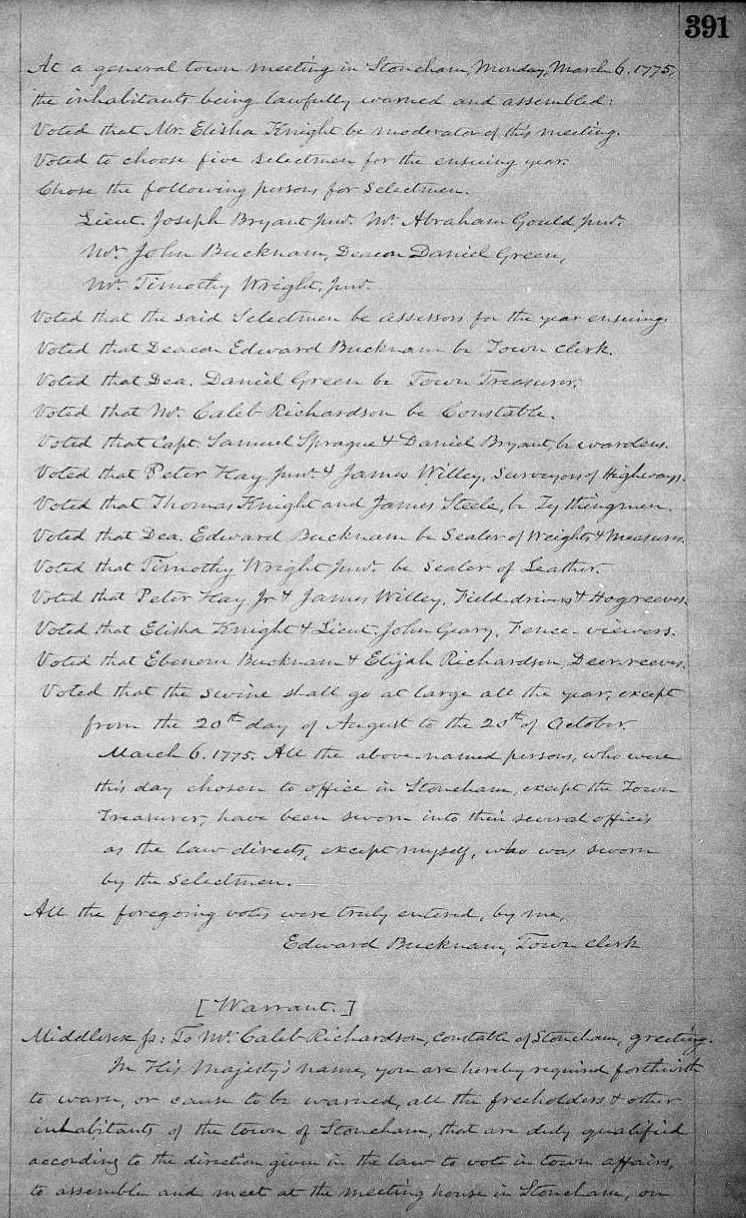 391
At a general town meeting in Stoneham, Monday, March 6. 1775,
the inhabitants being lawfully warned and assembled:
Voted that Mr. Elisha Knight be moderator of this meeting.
Voted to choose five selectmen for the ensuing year.
Chose the following persons for Selectmen.
Lieut. Joseph Bryant junr. Mr. Abraham Gould, junr.
Mr. John Bucknam, Deacon Daniel Green,
Mr. Timothy Wright, junr.
Voted that the said Selectmen be assessors for the year ensuing.
Voted that Deacon Edward Bucknam be Town Clerk.
Voted that Dea. Daniel Green be Town Treasurer.
Voted that Mr. Caleb Richardson be Constable.
Voted that Capt. Samuel Sprague & Daniel Bryant, be wardens.
Voted that Peter Hay junr. & James Willey, Surveyors of Highways.
Voted that Thomas Knight and James Steele, be Tythingmen.
Voted that Dea. Edward Bucknam be Sealer of Weights & Measures.
Voted that Timothy Wright junr. be Sealer of Leather.
Voted that Peter Hay Jr & James Willey, Field-drivers & Hogreeves.
Voted that Elisha Knight & Lieut. John Geary, Fence-viewers.
Voted that Ebenezer Bucknam & Elijah Richardson, Deer-reeves.
Voted that the swine shall go at large all the year, except
from the 20th day of August to the 20th of October.
March 6. 1775. All the above-named persons, who were
this day chosen to office in Stoneham, except the Town
Treasurer, have been sworn into their several offices
as the law directs, except myself, who was sworn
by the Selectmen.
All the foregoing votes were truly entered, by me,
Edward Bucknam, Town Clerk
[Warrant.]
Middlesex ss: To Mr. Caleb Richardson, constable of Stoneham, greeting.
In His Majesty's name, you are hereby required forthwith
to warn, or cause to be warned, all the freeholders & other
inhabitants of the town of Stoneham, that are duly qualified
according to the direction given in the law to vote in town affairs,
to assemble and meet at the meeting house in Stoneham, on